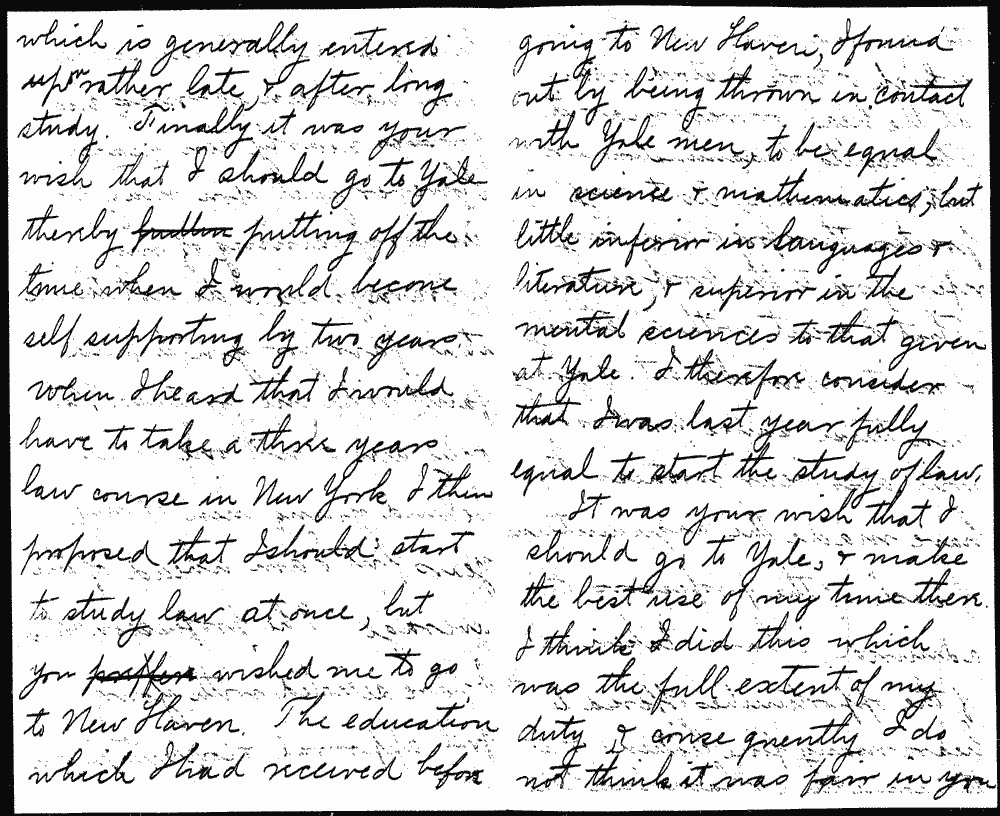 which is generally entered
upon rather late, & after long
study. Finally it was your
wish that I should go to Yale
thereby putting off the
time when I would become
self supporting by two years
when I heard that I would
have to take a three years
law course in New York I then
proposed that I should start
to study law at once, but
you wished me to go
to New Haven. The education
which I had received before
going to New Haven, I found
out by being thrown in contact
with Yale men, to be equal
in science & mathematics, but
little inferior in languages &
literature, & superior in the
mental sciences to that given
at Yale. I therefore consider
that I was last year fully
equal to start the study of law.
It was your wish that I
should go to Yale, & make
the best use of my time there.
I think I did this which
was the full extent of my
duty & consequently I do
not think it was fair in you